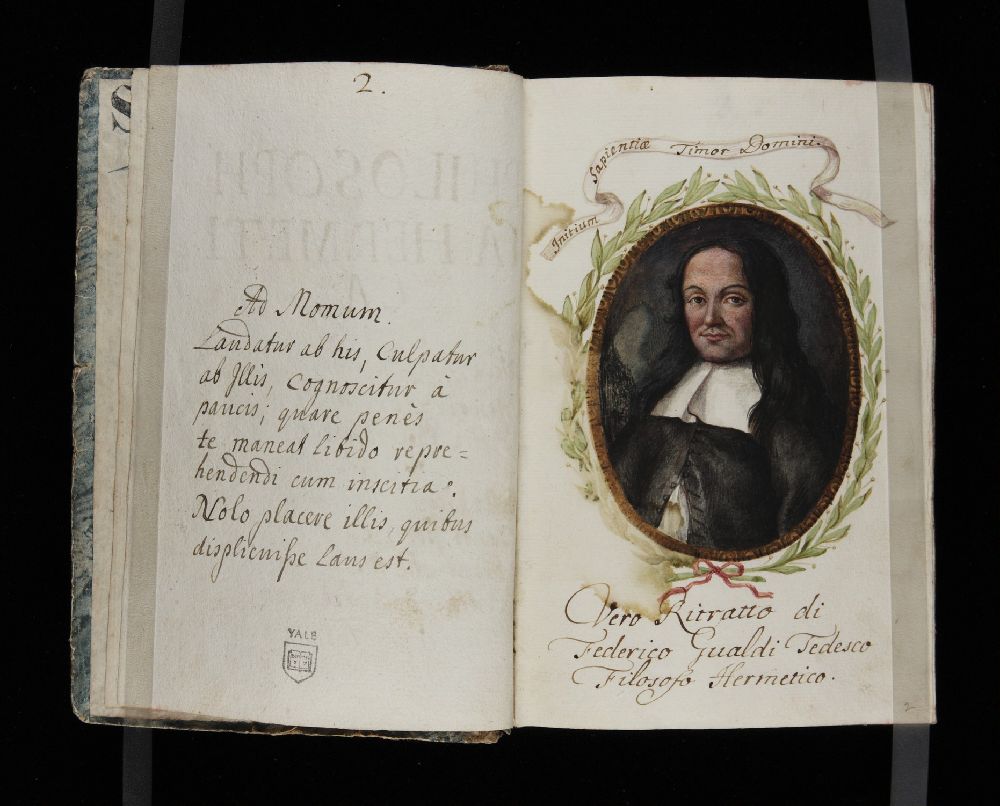 2.
Ad Momum.
Laudatur ab his, Culpatur
ab Illis, Cognoscitur à
paucis; quare penès
te maneat libido repre=
hendendi cum inscitia.
Nolo placere illis, quibus
displicuiſse Laus est.
YALE
Initium Sapientiæ Timor Domini.
Vero Ritratto di
Federico Gualdi Tedesco
Filosofo Hermetico.
2